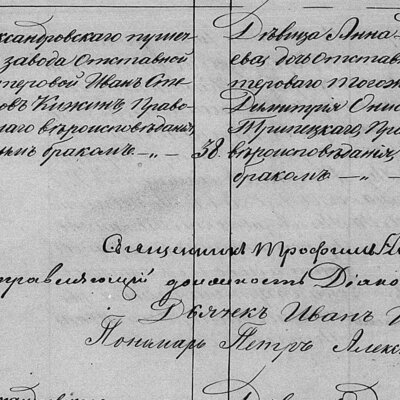 ксандровскаго пушеч
завода Отставной
теровой Иванъ Сте
овъ Кижинъ, Право
наго вѣроисповѣданія,
ымъ бракомъ — „ —
38.
Дѣвица Анна
ева, дочь Отстав
тероваго того ж
Димитрія Они
Трипецкаго, Пра
вѣроисповѣданія,
бракомъ — „ —
Священникъ Трофимъ
правляющій должность Діако
Дьячекъ Иванъ
Пономарь Петръ Алекс